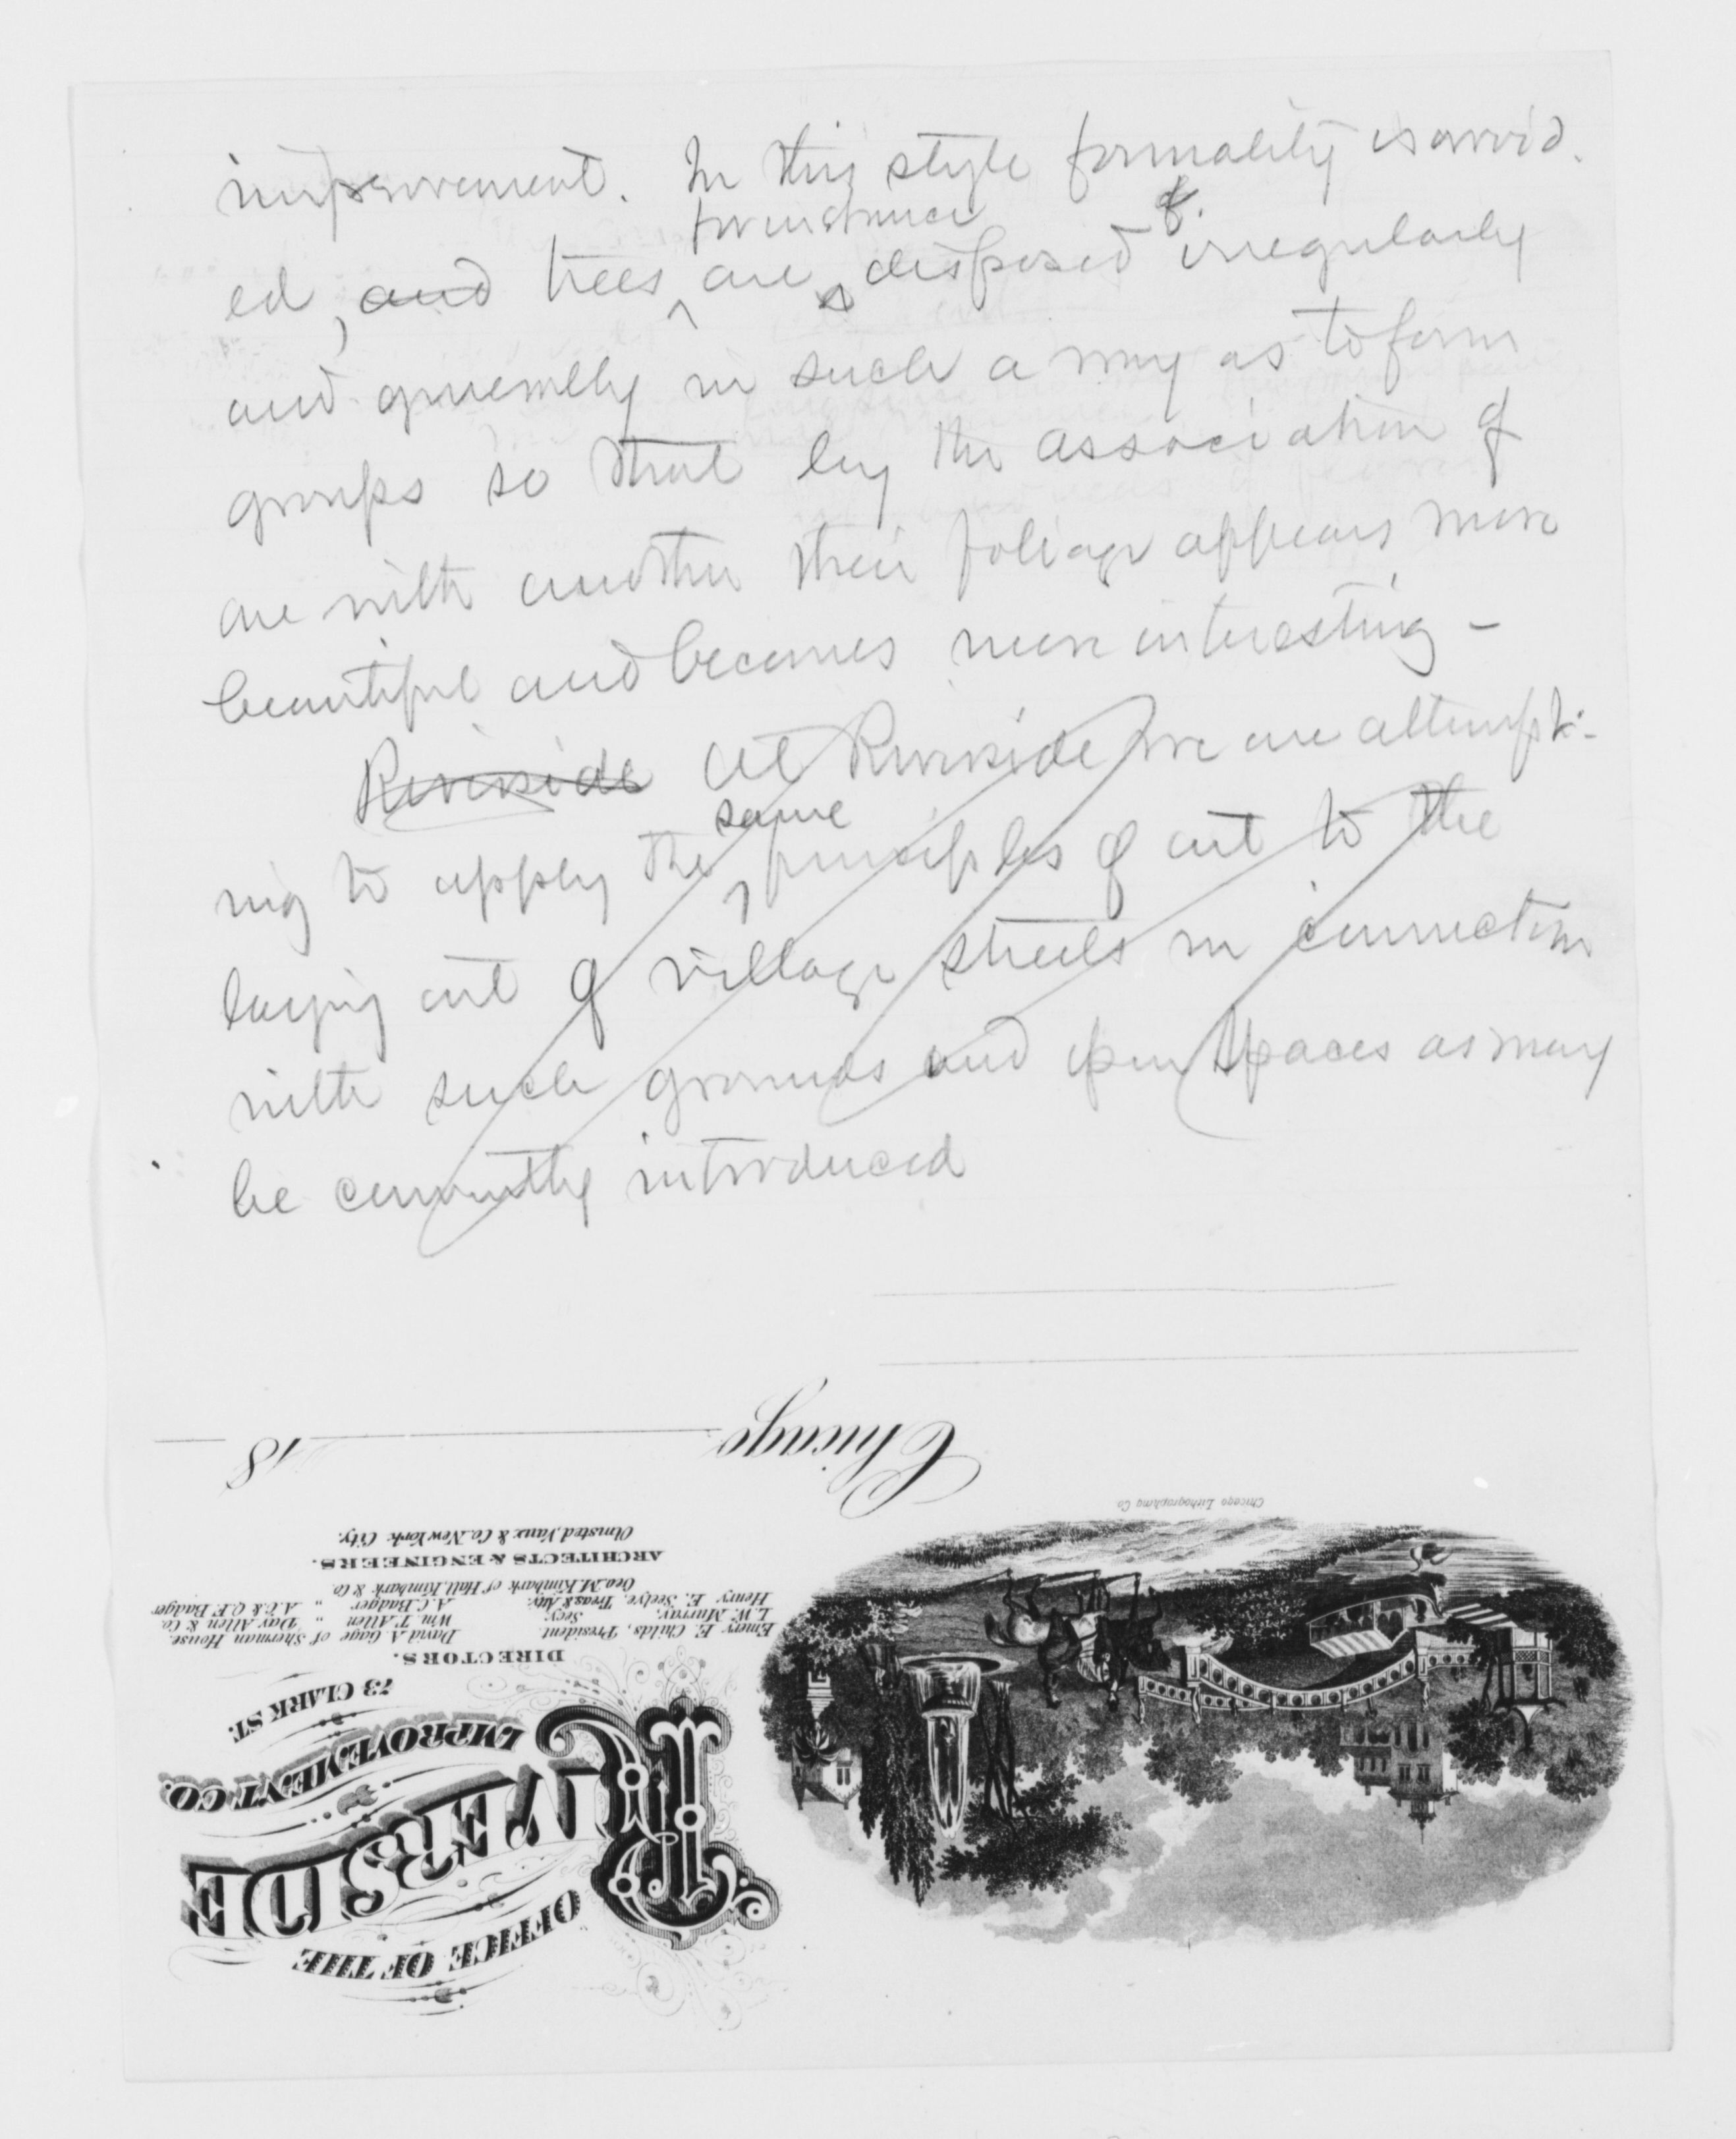 improvement. In this style formality is avoid-
ed, and trees ^ for instance are disposed irregularly
and generally in such a way as to form
groups so that by the association of
one with another their foliage appears more
beautiful and becomes more interesting –
Riverside At Riverside we are attempt-
ing to apply the ^ same principles of art to the
laying out of village streets in connection
with such grounds and open spaces as may
be introduced
Chicago 18
Chicago Lithographing Co
OFFICE OF THE
RIVERSIDE
IMPROVEMENT CO.
73 CLARK ST.
DIRECTORS.
Emery E. Childs, President. David A. Gage of Sherman House.
L.W. Murray, Secy. Wm. T. Allen " Day Allen & Co.
Henry E. Seelye, Treas & Atty. A.C. Badger " A.C. & O.F. Badger
Geo. M. Kimbark of Hall Kimbark & Co.
ARCHITECTS & ENGINEERS.
Olmsted, Vaux & Co. New York City.